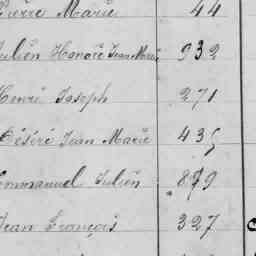 Pierre Marie 44
Julien Honoré Jean Marie 932
Henri Joseph 271
Désiré Jean Marie 435
Emmanuel Julien 879
Jean François 327